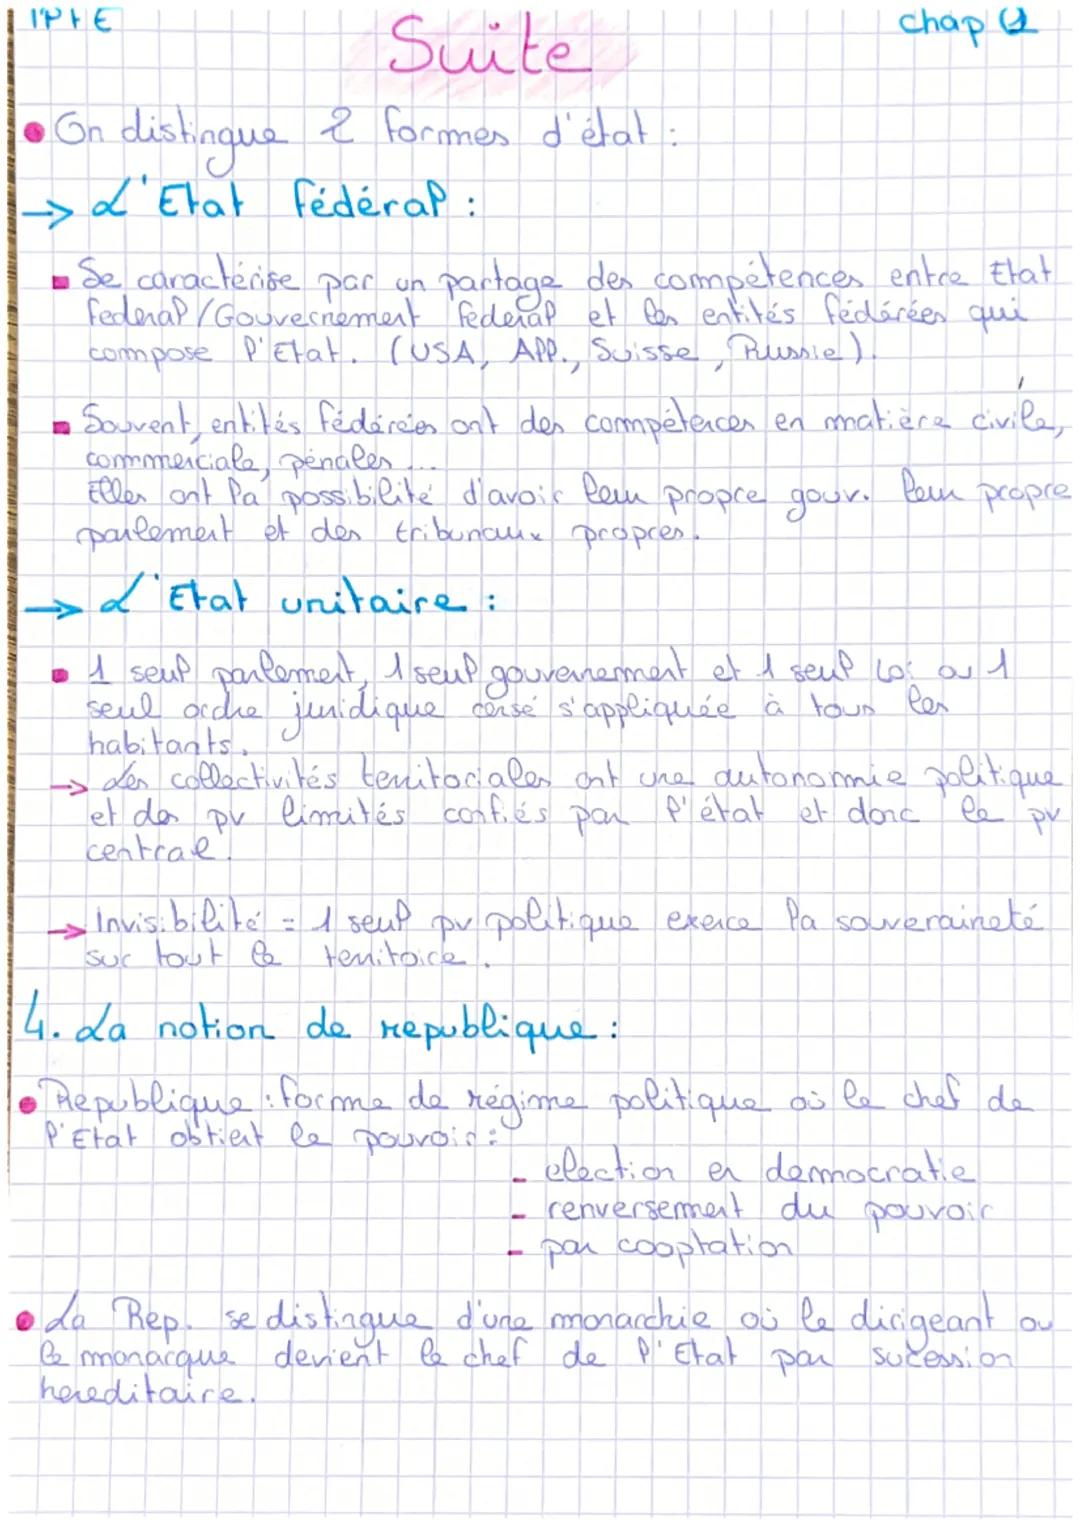 IPIE
chap 1
Suite
On distingue 2 formes d'état :
→ L'Etat fédéral :
Se caractérise par un partage des compétences entre Etat
federal/Gouvernement federal et les entités fédérées qui
compose l'Etat. (USA, All., Suisse, Russie).
Souvent, entités fédérées ont des compétences en matière civile,
commerciale, pénales ...
Elles ont la possibilité d'avoir leur propre gouv. leur propre
parlement et des tribunaux propres.
→ L'Etat unitaire :
1 seul parlement, 1 seul gouvernement et 1 seul loi ou 1
seul ordre juridique censé s'appliquée à tous les
habitants.
→ des collectivités territoriales ont une autonomie politique
et des pv limités confiés par l'état et donc le pv
central.
→ Invisibilité = 1 seul pv politique exerce la souveraineté
sur tout le territoire.
4. La notion de republique :
Republique : forme de régime politique où le chef de
l'Etat obtient le pouvoir :
- election en democratie
- renversement du pouvoir
- par cooptation
La Rep. se distingue d'une monarchie où le dirigeant ou
le monarque devient le chef de l'Etat par sucession
hereditaire.